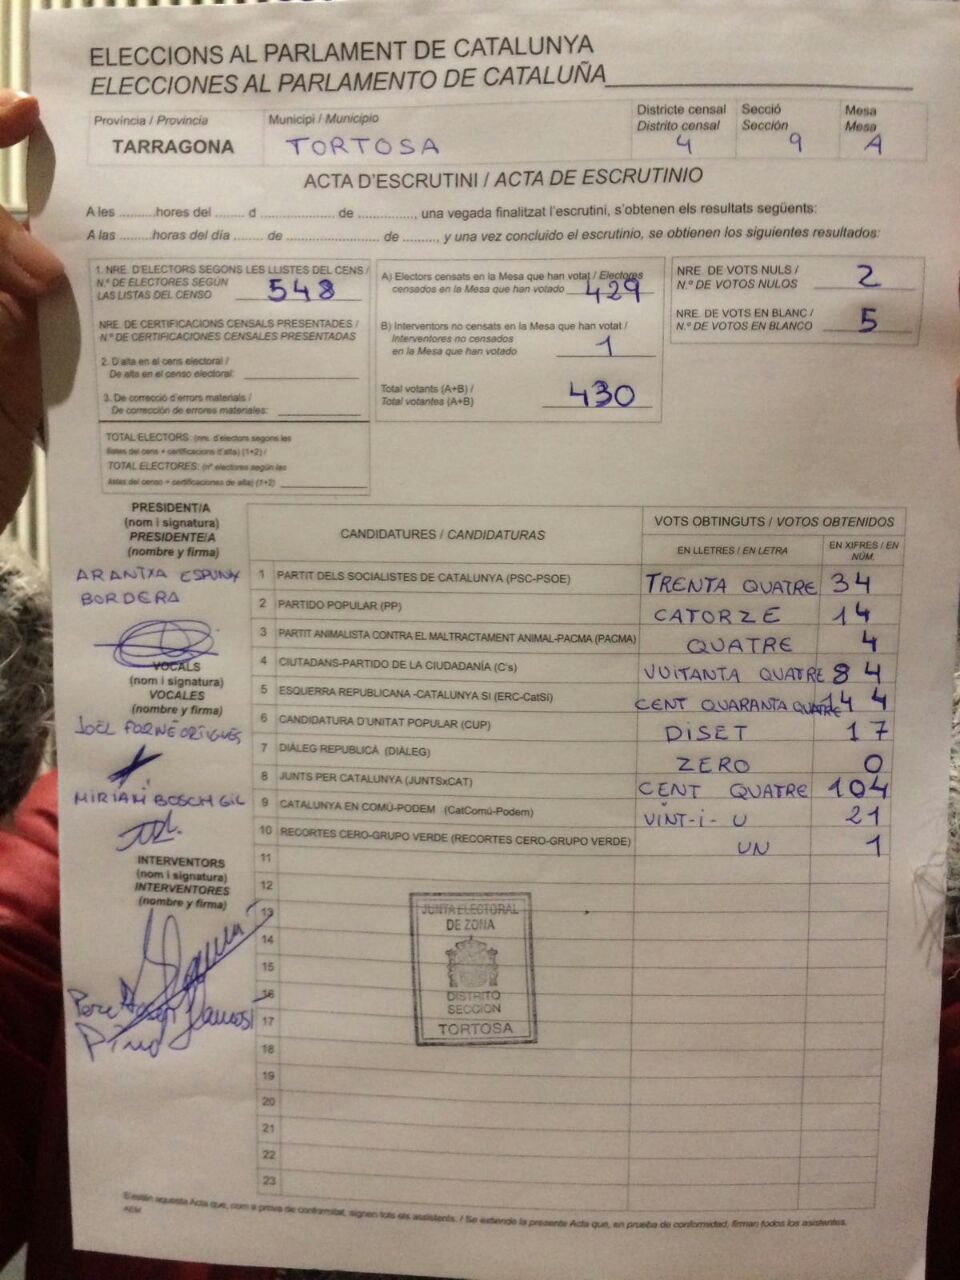 ELECCIONS AL PARLAMENT DE CATALUNYA
ELECCIONES AL PARLAMENTO DE CATALUÑA
Província / Provincia
TARRAGONA
Municipi / Municipio
TORTOSA
Districte censal
Distrito censal
4
Secció
Sección
9
Mesa
Mesa
A
ACTA D'ESCRUTINI / ACTA DE ESCRUTINIO
A les ..........hores del ........ d .................... de ..............., una vegada finalitzat l'escrutini, s'obtenen els resultats següents:
A las .........horas del día ....... de ......................... de ........., y una vez concluido el escrutinio, se obtienen los siguientes resultados:
1. NRE. D'ELECTORS SEGONS LES LLISTES DEL CENS /
N.º DE ELECTORES SEGÚN
LAS LISTAS DEL CENSO 548
NRE. DE CERTIFICACIONS CENSALS PRESENTADES /
N.º DE CERTIFICACIONES CENSALES PRESENTADAS
2. D'alta en el cens electoral /
De alta en el censo electoral:
3. De correcció d'errors materials /
De corrección de errores materiales:
TOTAL ELECTORS: (nre. d'electors segons les
llistes del cens + certificacions d'alta) (1+2) /
TOTAL ELECTORES: (nº electores según las
listas del censo + certificaciones de alta) (1+2)
A) Electors censats en la Mesa que han votat / Electores
censados en la Mesa que han votado 429
B) Interventors no censats en la Mesa que han votat /
Interventores no censados
en la Mesa que han votado 1
Total votants (A+B) /
Total votantes (A+B) 430
NRE. DE VOTS NULS /
N.º DE VOTOS NULOS 2
NRE. DE VOTS EN BLANC /
N.º DE VOTOS EN BLANCO 5
PRESIDENT/A
(nom i signatura)
PRESIDENTE/A
(nombre y firma)
ARANTXA ESPUNY
BORDERA
VOCALS
(nom i signatura)
VOCALES
(nombre y firma)
JOEL FORNÉ
MIRIAM BOSCH GIL
INTERVENTORS
(nom i signatura)
INTERVENTORES
(nombre y firma)
CANDIDATURES / CANDIDATURAS
VOTS OBTINGUTS / VOTOS OBTENIDOS
EN LLETRES / EN LETRA
EN XIFRES / EN NÚM.
1 PARTIT DELS SOCIALISTES DE CATALUNYA (PSC-PSOE) TRENTA QUATRE 34
2 PARTIDO POPULAR (PP) CATORZE 14
3 PARTIT ANIMALISTA CONTRA EL MALTRACTAMENT ANIMAL-PACMA (PACMA) QUATRE 4
4 CIUTADANS-PARTIDO DE LA CIUDADANÍA (C's) VUITANTA QUATRE 84
5 ESQUERRA REPUBLICANA -CATALUNYA SI (ERC-CatSí) CENT QUARANTA QUATRE 144
6 CANDIDATURA D'UNITAT POPULAR (CUP) DISET 17
7 DIÀLEG REPUBLICÀ (DIÀLEG) ZERO 0
8 JUNTS PER CATALUNYA (JUNTSxCAT) CENT QUATRE 104
9 CATALUNYA EN COMÚ-PODEM (CatComú-Podem) VINT-I-U 21
10 RECORTES CERO-GRUPO VERDE (RECORTES CERO-GRUPO VERDE) UN 1
11
12
13
14
15
16
17
18
19
20
21
22
23
JUNTA ELECTORAL
DE ZONA
DISTRITO
SECCION
TORTOSA
S'estén aquesta Acta que, com a prova de conformitat, signen tots els assistents. / Se extiende la presente Acta que, en prueba de conformidad, firman todos los asistentes.
AEM